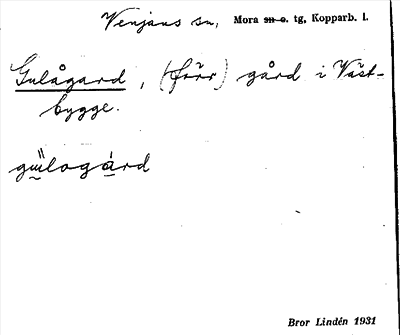 Venjans sn, Mora sn o. tg, Kopparb. l.
Gulågard, (förr) gård i Väst-
bygge.
Bror Lindén 1931